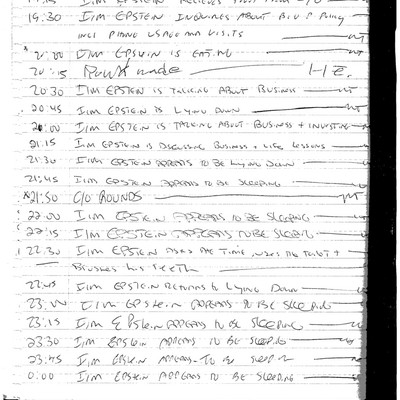 19:30 I/M EPSTEIN INQUIRES ABOUT
INCL PHONE USAGE AND VISITS
* 20:00 I/M EPSTEIN IS EATING MT
20:15 Rounds made HE.
20:30 I/M EPSTEIN IS TALKING ABOUT BUSINESS MT
20:45 I/M EPSTEIN IS LYING DOWN MT
I/M EPSTEIN IS TALKING ABOUT BUSINESS + INVESTING
21:15 I/M EPSTEIN IS DISCUSSING BUSINESS + LIFE LESSONS
21:30 I/M EPSTEIN APPEARS TO BE LYING DOWN
21:45 I/M EPSTEIN APPEARS TO BE SLEEPING
*21:50 C/O ROUNDS MT
22:00 I/M EPSTEIN APPEARS TO BE SLEEPING
22:15 I/M EPSTEIN APPEARS TO BE SLEEPING
22:30 I/M EPSTEIN ASKS THE TIME USES THE TOILET +
BRUSHES HIS TEETH
22:45 I/M EPSTEIN RETURNS TO LYING DOWN
23:00 I/M EPSTEIN APPEARS TO BE SLEEPING
23:15 I/M EPSTEIN APPEARS TO BE SLEEPING
23:30 I/M EPSTEIN APPEARS TO BE SLEEPING
23:45 I/M EPSTEIN APPEARS TO BE SLEEPING
0:00 I/M EPSTEIN APPEARS TO BE SLEEPING